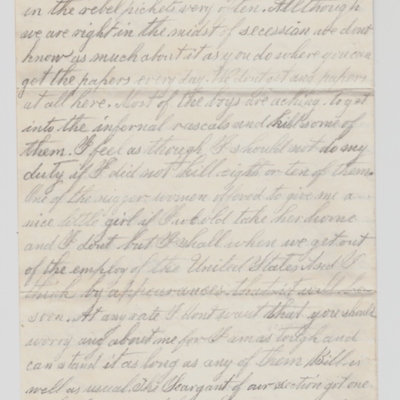 in the rebel pickets very often. Allthough
we are right in the midst of secession we dont
know as much about it as you do where you can
get the papers every day. We dont get any papers
at all here. Most of the boys are aching to get
into the infernal rascals and kill some of
them. I feel as though I should not do my
duty if I did not kill eight or ten of them.
One of the nigger women offered to give me a
nice little girl if I would take her home
and I dont but I shall when we get out
of the employ of the United States. And I
think by appearances that it will be
soon. At any rate I dont want that you should
worry any about me for I am as tough and
can stand it as long as any of them. Bill is
well as usual. The Seargant of our section got one